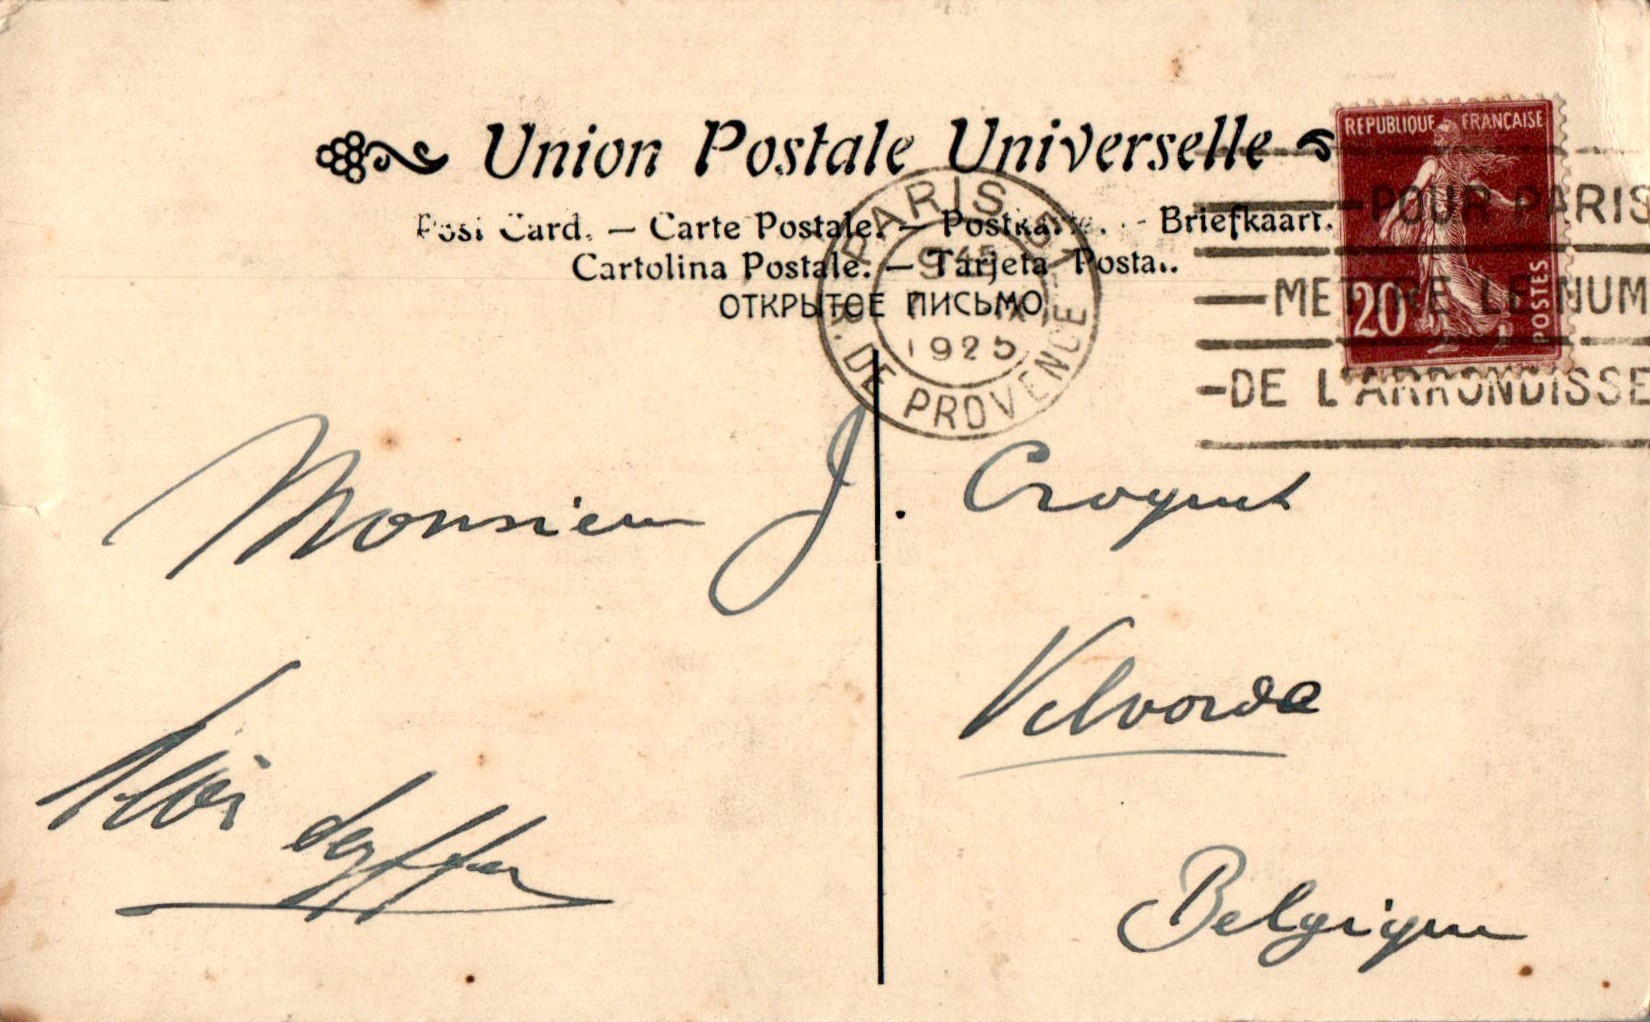 Union Postale Universelle
Post Card. — Carte Postale. — Postkarte. - Briefkaart.
Cartolina Postale. — Tarjeta Posta..
ОТКРЫТОЕ ПИСЬМО
REPUBLIQUE FRANÇAISE
20
POSTES
PARIS
R. DE PROVENCE
1925
POUR PARIS
METTRE LE NUM
DE L'ARRONDISSE
Monsieur J. Croquet
Vilvorde
Belgique